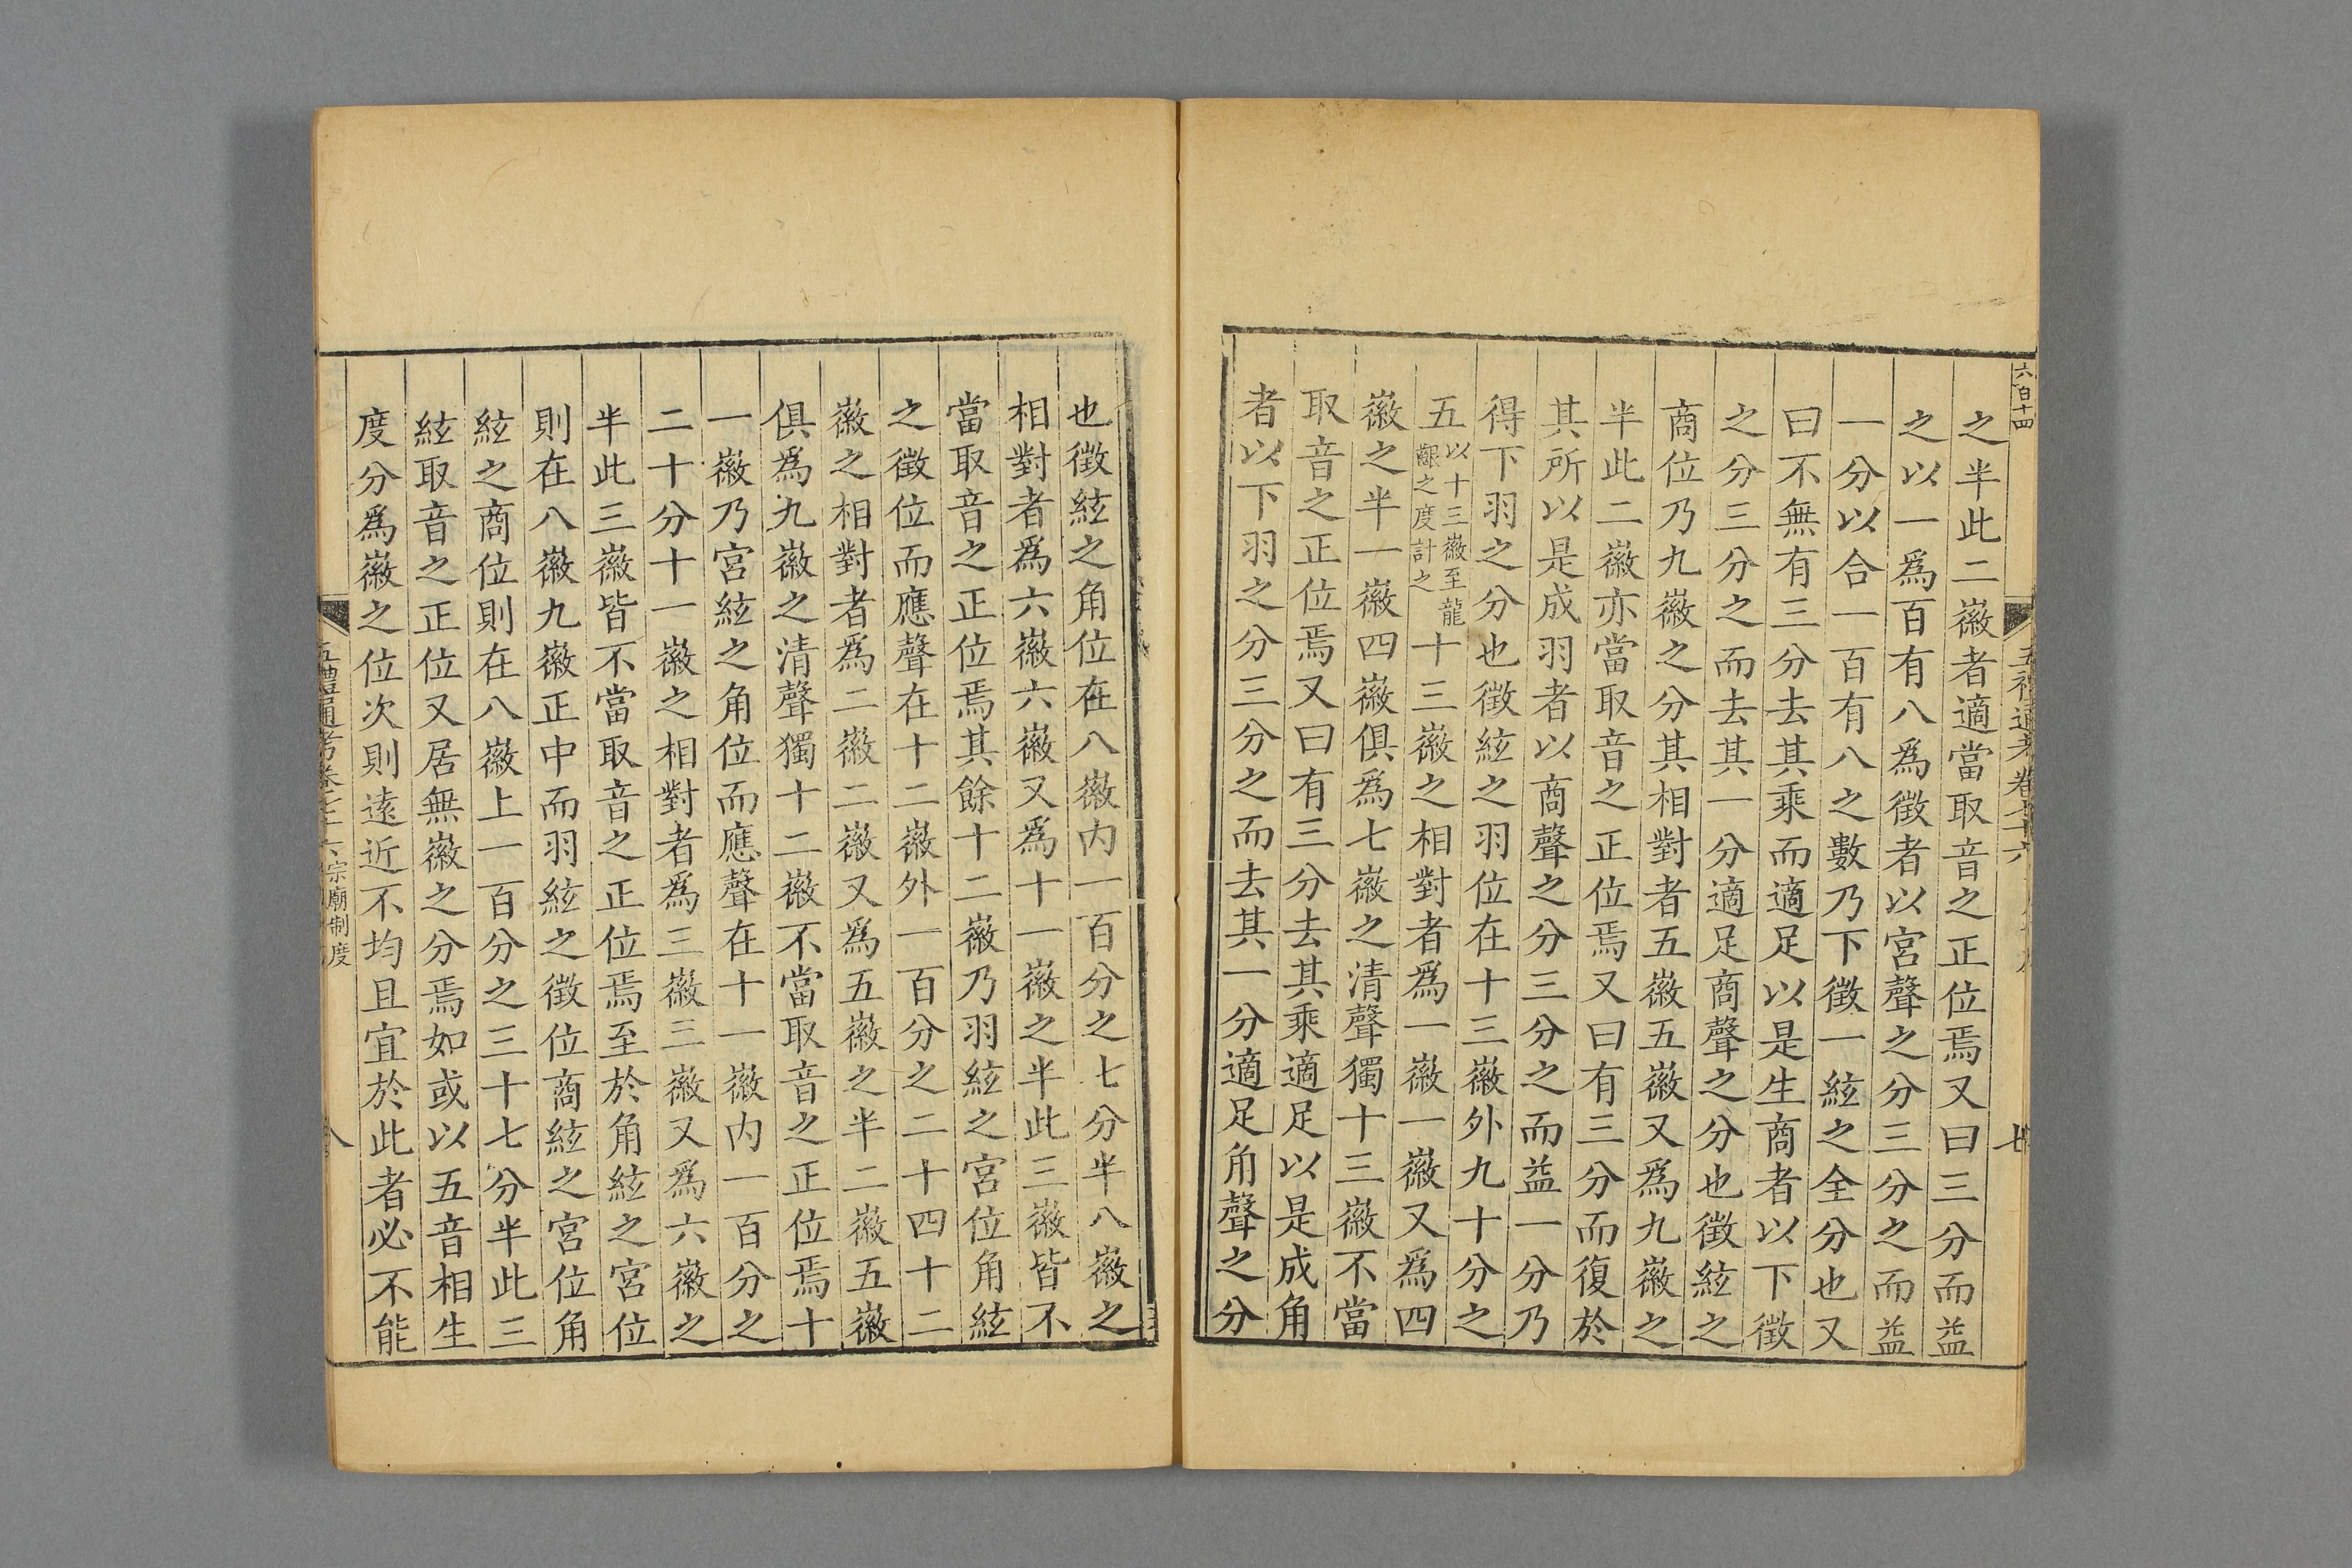 六百十四
五禮通考卷七十六
七
之半此二徽者適當取音之正位焉又曰三分而益
之以一爲百有八爲徵者以宮聲之分三分之而益
一分以合一百有八之數乃下徵一絃之全分也又
曰不無有三分去其乘而適足以是生商者以下徵
之分三分之而去其一分適足商聲之分也徵絃之
商位乃九徽之分其相對者五徽五徽又爲九徽之
半此二徽亦當取音之正位焉又曰有三分而復於
其所以是成羽者以商聲之分三分之而益一分乃
得下羽之分也徵絃之羽位在十三徽外九十分之
五以十三徽至龍齦之度計之十三徽之相對者爲一徽一徽又爲四
徽之半一徽四徽俱爲七徽之清聲獨十三徽不當
取音之正位焉又曰有三分去其乘適足以是成角
者以下羽之分三分之而去其一分適足角聲之分
也徵絃之角位在八徽内一百分之七分半八徽之
相對者爲六徽六徽又爲十一徽之半此三徽皆不
當取音之正位焉其餘十二徽乃羽絃之宮位角絃
之徵位而應聲在十二徽外一百分之二十四十二
徽之相對者爲二徽二徽又爲五徽之半二徽五徽
俱爲九徽之清聲獨十二徽不當取音之正位焉十
一徽乃宮絃之角位而應聲在十一徽内一百分之
二十分十一徽之相對者爲三徽三徽又爲六徽之
半此三徽皆不當取音之正位焉至於角絃之宮位
則在八徽九徽正中而羽絃之徵位商絃之宮位角
絃之商位則在八徽上一百分之三十七分半此三
絃取音之正位又居無徽之分焉如或以五音相生
度分爲徽之位次則遠近不均且宜於此者必不能
五禮通考卷七十六 宗廟制度
八